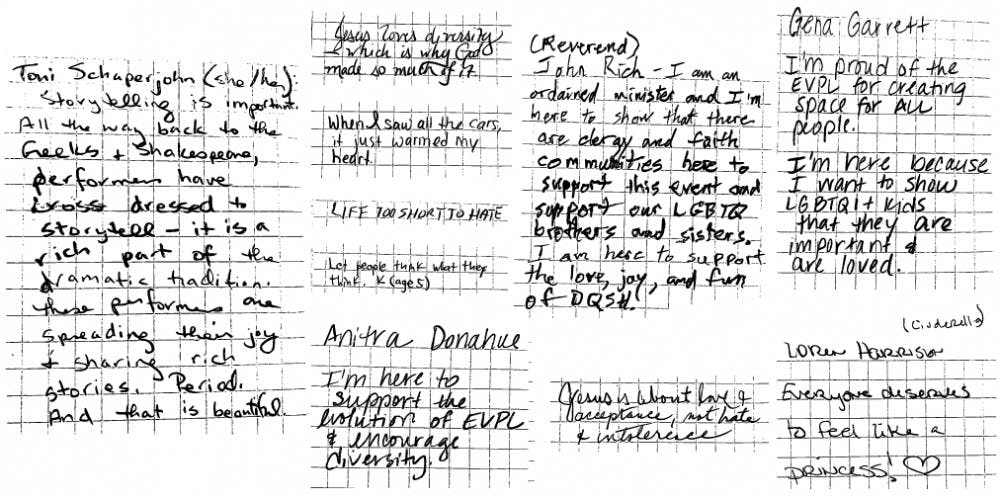 Toni Schaperjohn (she/her):
Storytelling is important.
All the way back to the
Greeks + Shakespeare,
performers have
cross dressed to
storytell - it is a
rich part of the
dramatic tradition.
these performers are
spreading their joy
+ sharing rich
stories. Period.
And that is beautiful.
Jesus loves diversity
- which is why God
made so much of it
When I saw all the cars,
it just warmed my
heart.
LIFE TOO SHORT TO HATE
Let people think what they
think. K (age 5)
Anitra Donahue
I'm here to
support the
evolution of EVPL
& encourage
diversity.
(Reverend)
John Rich - I am an
ordained minister and I'm
here to show that there
are clergy and faith
communities here to
support this event and
support our LGBTQ
brothers and sisters.
I am here to support
the love, joy, and fun
of DQSH!
Jesus is about love &
acceptance, not hate
& intolerence
Gena Garrett
I'm proud of the
EVPL for creating
space for ALL
people.
I'm here because
I want to show
LGBTQI+ kids
that they are
important &
are loved.
(Cinderella)
LOREN HARRISON
Everyone deserves
to feel like a
PRINCESS! ♡